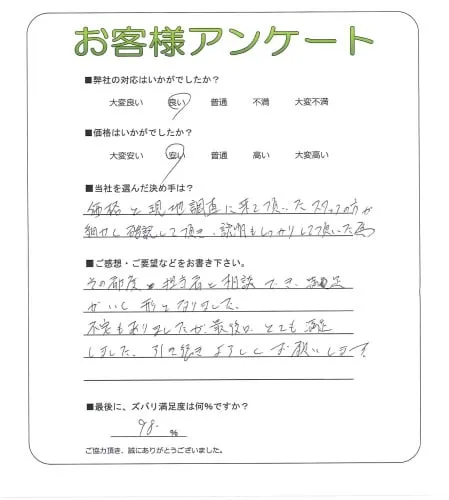 お客様アンケート
■弊社の対応はいかがでしたか?
大変良い 良い 普通 不満 大変不満
■価格はいかがでしたか?
大変安い 安い 普通 高い 大変高い
■当社を選んだ決め手は?
価格と現地調査に来て頂いたスタッフの方が
細かく確認して頂き、説明もしっかりして頂いた為
■ご感想・ご要望などをお書き下さい。
その都度、担当者と相談でき、満足
がいく形となりました。
不安もありましたが、最後は、とても満足
しました。引き続きよろしくお願いします
■最後に、ズバリ満足度は何%ですか?
98. %
ご協力頂き、誠にありがとうございました。